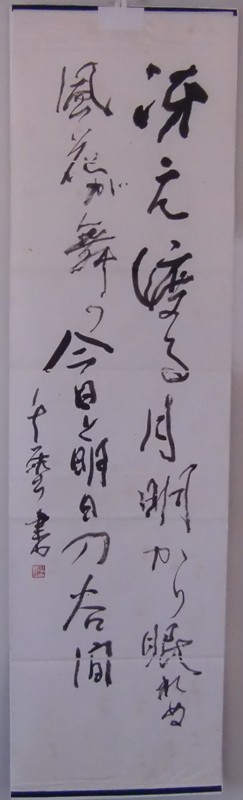 冴え渡る月明かり眠れぬ
風花が舞う今日と明日の谷間
書